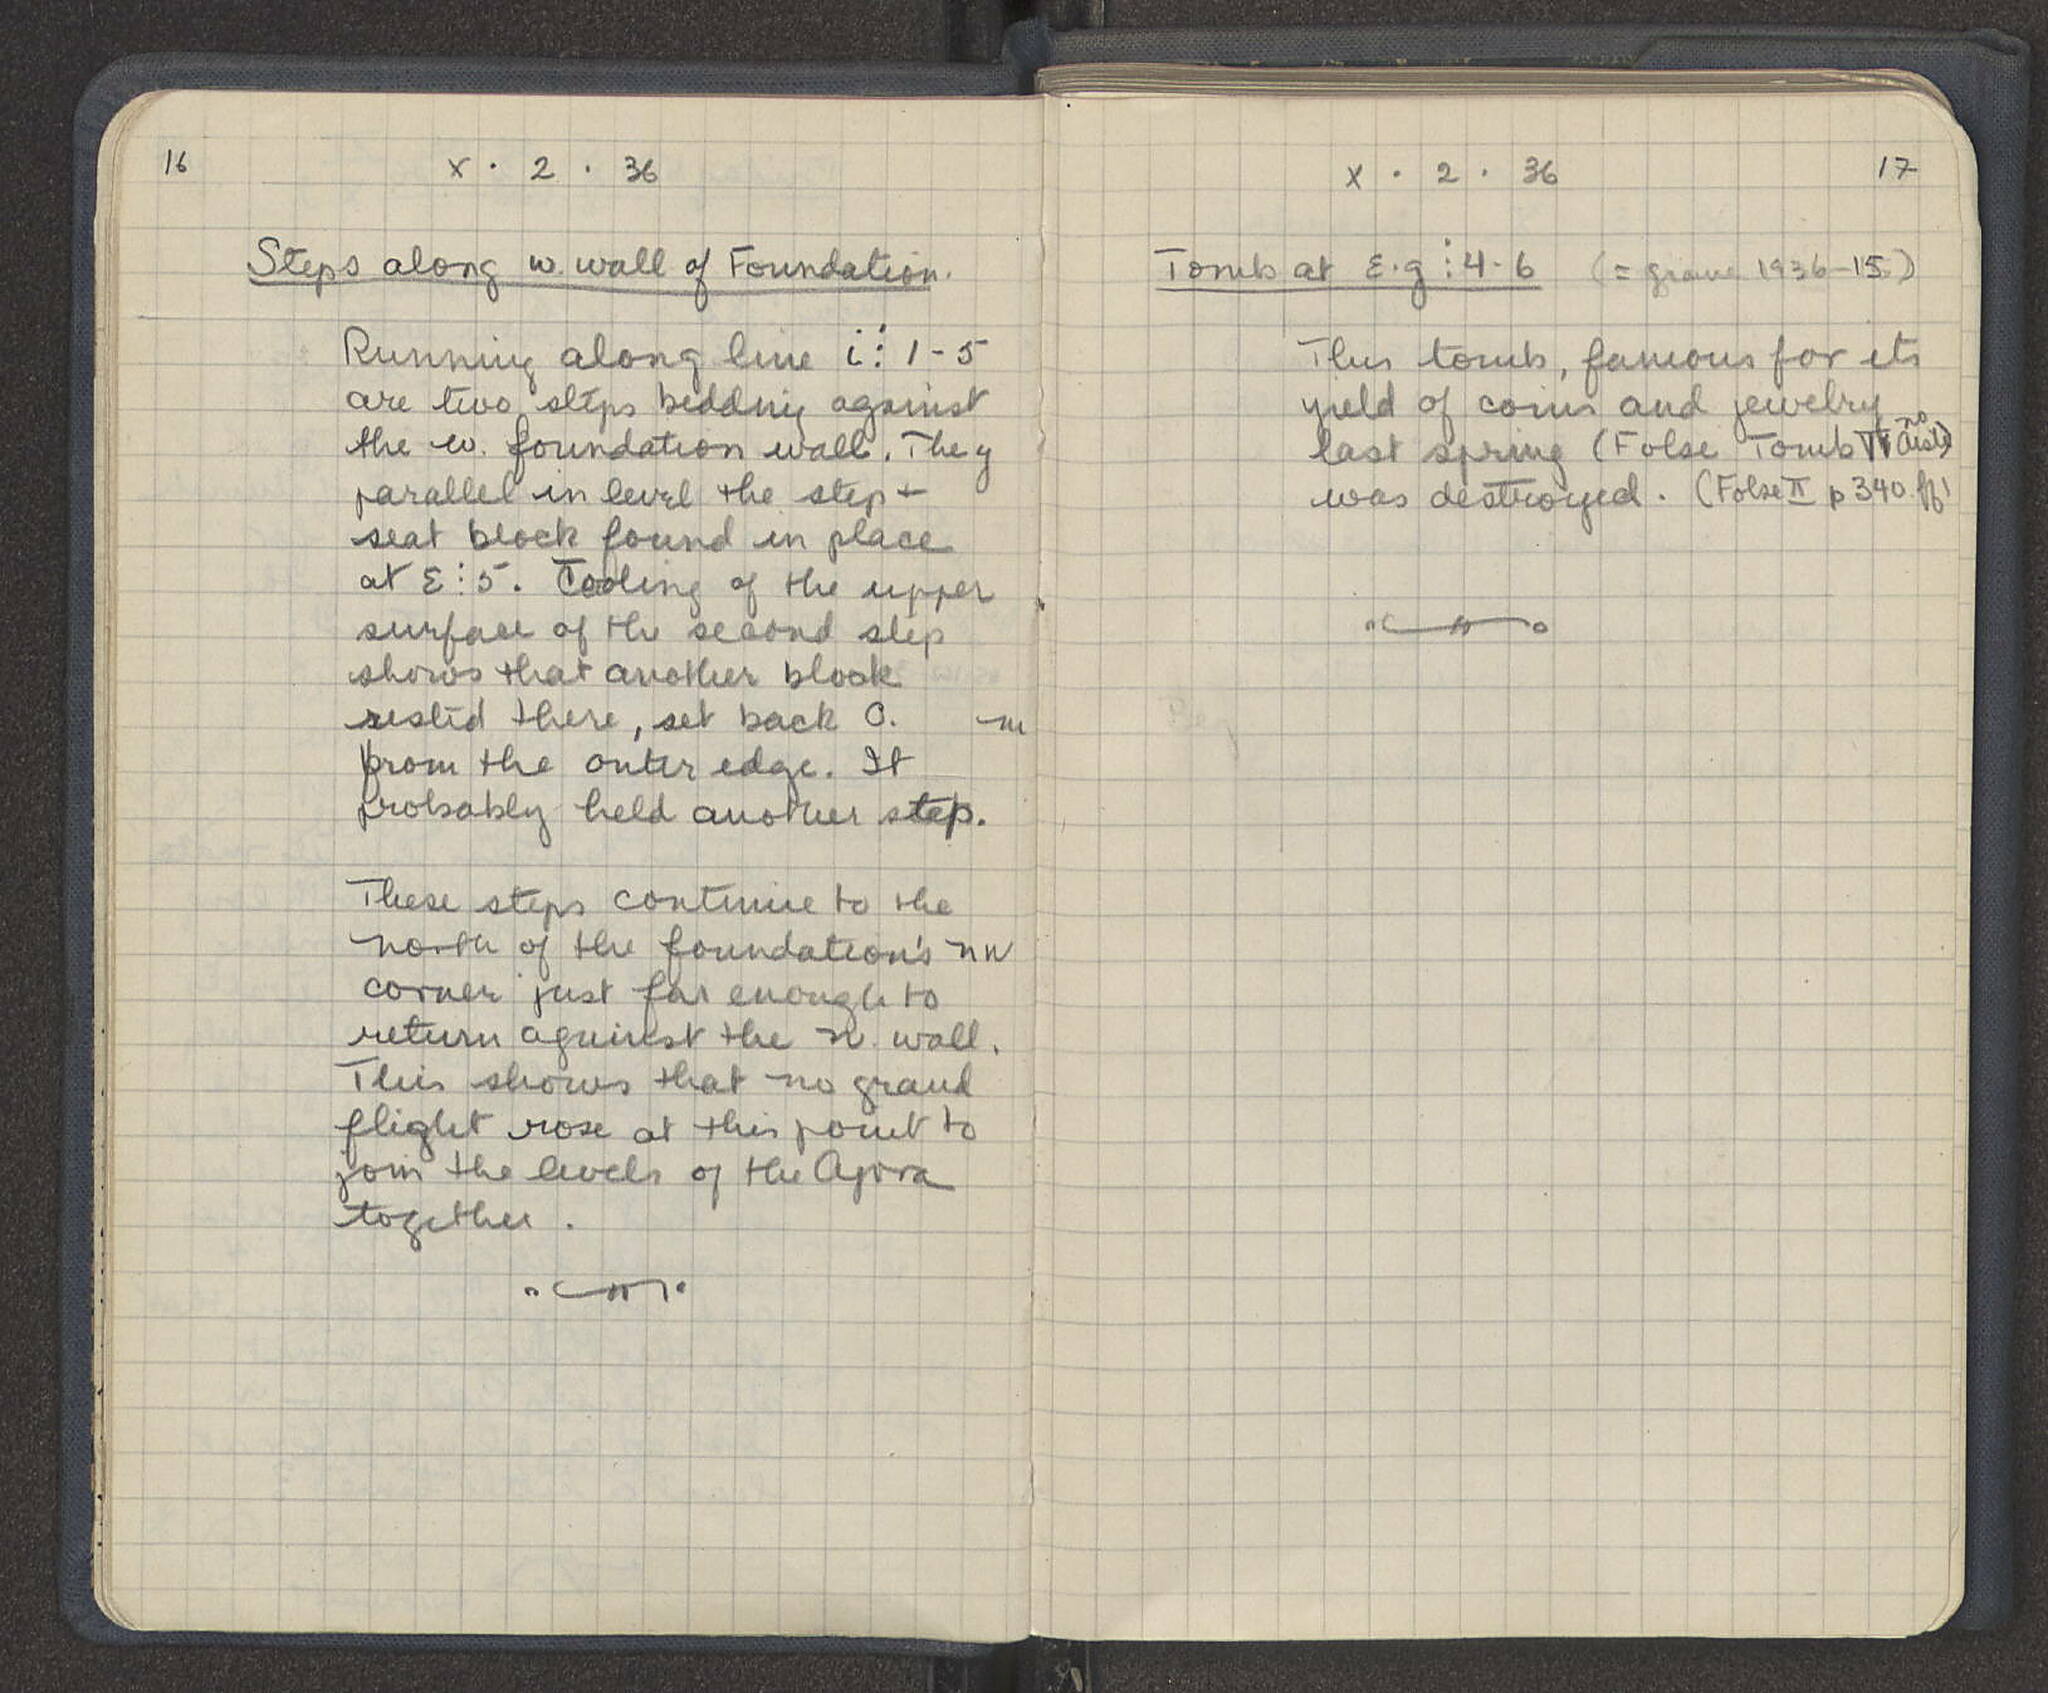 16
X · 2 · 36
Steps along w. wall of Foundation.
Running along line i⋮ 1-5
are two steps bedding against
the w. foundation wall. They
parallel in level the step +
seat block found in place
at ε⋮5. Tooling of the upper
surface of the second step
shows that another block
rested there, set back 0. m
from the outer edge. It
probably held another step.
These steps continue to the
north of the foundation's NW
corner just far enough to
return against the N. wall.
This shows that no grand
flight rose at this point to
join the levels of the Agora
together.
X · 2 · 36
17
Tomb at ε·g⋮4-6 (= grave 1936-15)
This tomb, famous for its
yield of coins and jewelry
last spring (Folse Tomb VI no
was destroyed. (Folse II p 340 ff)